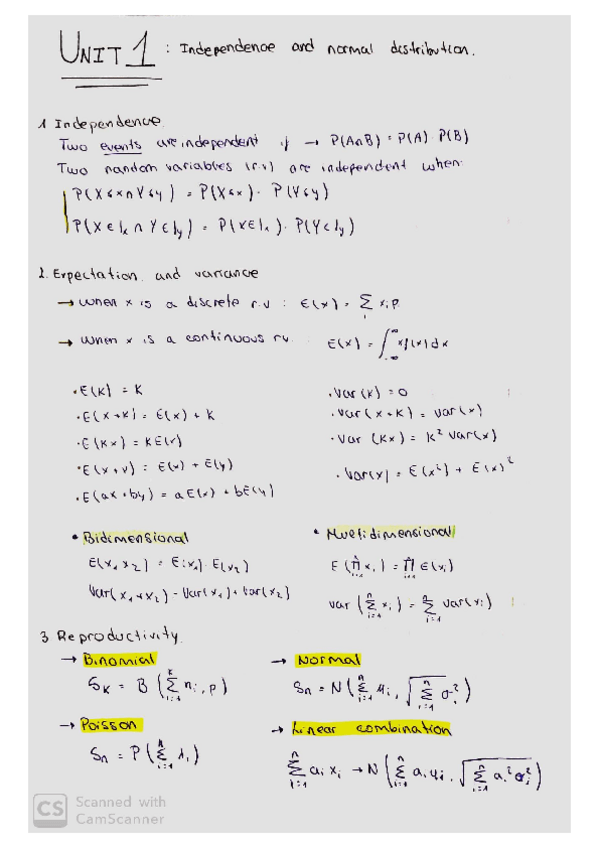 UNIT 1 : Independence and normal distribution.
1 Independence
Two events are independent if → P(A∩B) = P(A) · P(B)
Two random variables (r.v) are independent when:
P(X≤x ∩ Y≤y) = P(X≤x) · P(Y≤y)
P(X∈Ix ∩ Y∈Iy) = P(X∈Ix) · P(Y∈Iy)
2. Expectation and variance
→ when x is a discrete r.v : E(x) = Σ_i xi p
→ when x is a continuous rv E(x) = ∫_{-∞}^{∞} x f(x) dx
· E(K) = K
· E(x+K) = E(x) + K
· E(Kx) = K E(x)
· E(x+y) = E(x) + E(y)
· E(ax+by) = aE(x) + bE(y)
· Var(K) = 0
· Var(x+K) = Var(x)
· Var (Kx) = K² Var(x)
· Var(x) = E(x²) + E(x)²
• Bidimensional
E(x1 x2) = E(x1) · E(x2)
Var(x1+x2) = Var(x1) + Var(x2)
• Multidimensional
E (∏_{i=1}^{n} xi) = ∏_{i=1}^{n} E(xi)
var (Σ_{i=1}^{n} xi) = Σ_{i=1}^{n} var(xi)
3 Reproductivity
→ Binomial
SK = B (Σ_{i=1}^{K} ni, p)
→ Normal
Sn = N (Σ_{i=1}^{n} μi, √(Σ_{i=1}^{n} σi²))
→ Poisson
Sn = P (Σ_{i=1}^{n} λi)
→ Linear combination
Σ_{i=1}^{n} ai xi → N (Σ_{i=1}^{n} ai μi, √(Σ_{i=1}^{n} ai² σi²))
CS Scanned with
CamScanner